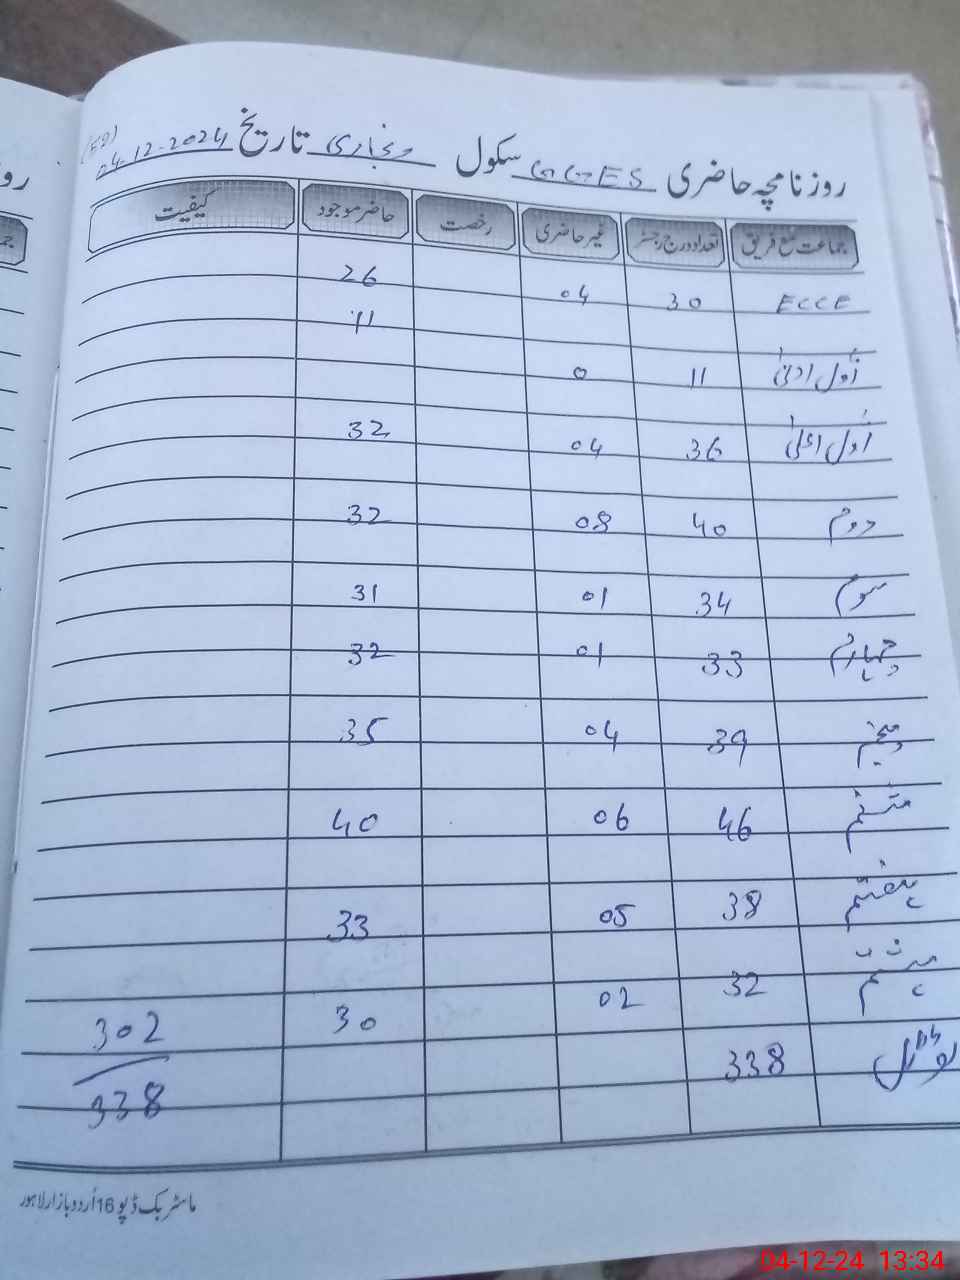 روزنامچہ حاضری GGES سکول ونجاری تاریخ 04-12-2024
جماعت مع فریق تعداد درج رجسٹر غیر حاضری رخصت حاضر موجود کیفیت
ECCE 30 04 26
اول ادنیٰ 11 0 11
اول اعلیٰ 36 04 32
دوم 40 08 32
سوم 34 01 31
چہارم 33 01 32
پنجم 39 04 35
ششم 46 06 40
ہفتم 38 05 33
ہشتم 32 02 30 302
ٹوٹل 338 338
ماسٹر بک ڈپو 16 اُردو بازار لاہور
04-12-24 13:34